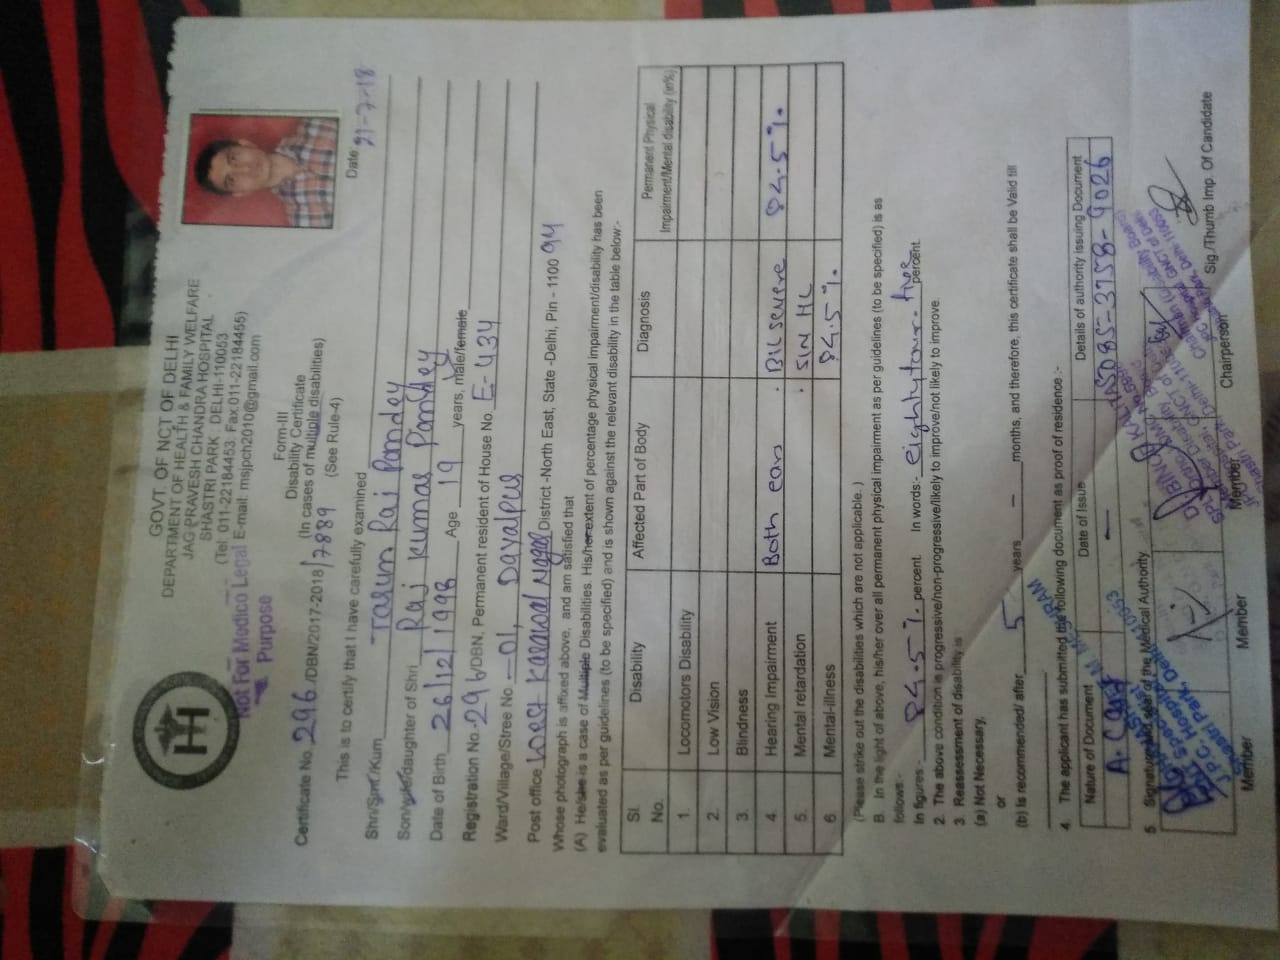 GOVT. OF NCT OF DELHI
DEPARTMENT OF HEALTH & FAMILY WELFARE
JAG PRAVESH CHANDRA HOSPITAL
SHASTRI PARK, DELHI-110053
(Tel: 011-22184453 Fax:011-22184455)
E-mail: msjpch2010@gmail.com
Not For Medico Legal
Purpose
Form-III
Disability Certificate
(In cases of multiple disabilities)
(See Rule-4)
Certificate No. 296 /DBN/2017-2018/7889
Date 21-7-18
This is to certify that I have carefully examined
Shri/Smt/Kum Tarun Raj Pandey
Son/wife/daughter of Shri Raj Kumar Pandey
Date of Birth 26/12/1998 Age 19 years, male/female
Registration No. 296/DBN, Permanent resident of House No. E-434
Ward/Village/Stree No. 01, Dayalpur
Post office West Karawal Nagar District -North East, State -Delhi, Pin - 1100 94
Whose photograph is affixed above, and am satisfied that
(A) He/she is a case of Multiple Disabilities. His/her extent of percentage physical impairment/disability has been
evaluated as per guidelines (to be specified) and is shown against the relevant disability in the table below:-
Sl. No. Disability Affected Part of Body Diagnosis Permanent Physical Impairment/Mental disability (in%)
1. Locomotors Disability
2. Low Vision
3. Blindness
4. Hearing Impairment Both ears B/L severe 84.5%
5. Mental retardation SIN HL
6 Mental-illness 84.5%
(Please strike out the disabilities which are not applicable.)
B. In the light of above, his/her over all permanent physical impairment as per guidelines (to be specified) is as
follows:-
In figures:- 84.5% percent In words:- eightyfour-five percent.
2. The above condition is progressive/non-progressive/likely to improve/not likely to improve.
3. Reassessment of disability is
(a) Not Necessary,
or
(b) Is recommended/ after 5 years — months, and therefore, this certificate shall be Valid till
4. The applicant has submitted the following document as proof of residence:-
Nature of Document Date of Issue Details of authority issuing Document
A. Card — 5085-3758-9026
5. Signature and seal of the Medical Authority
Member Member Member Chairperson Sig./Thumb Imp. Of Candidate